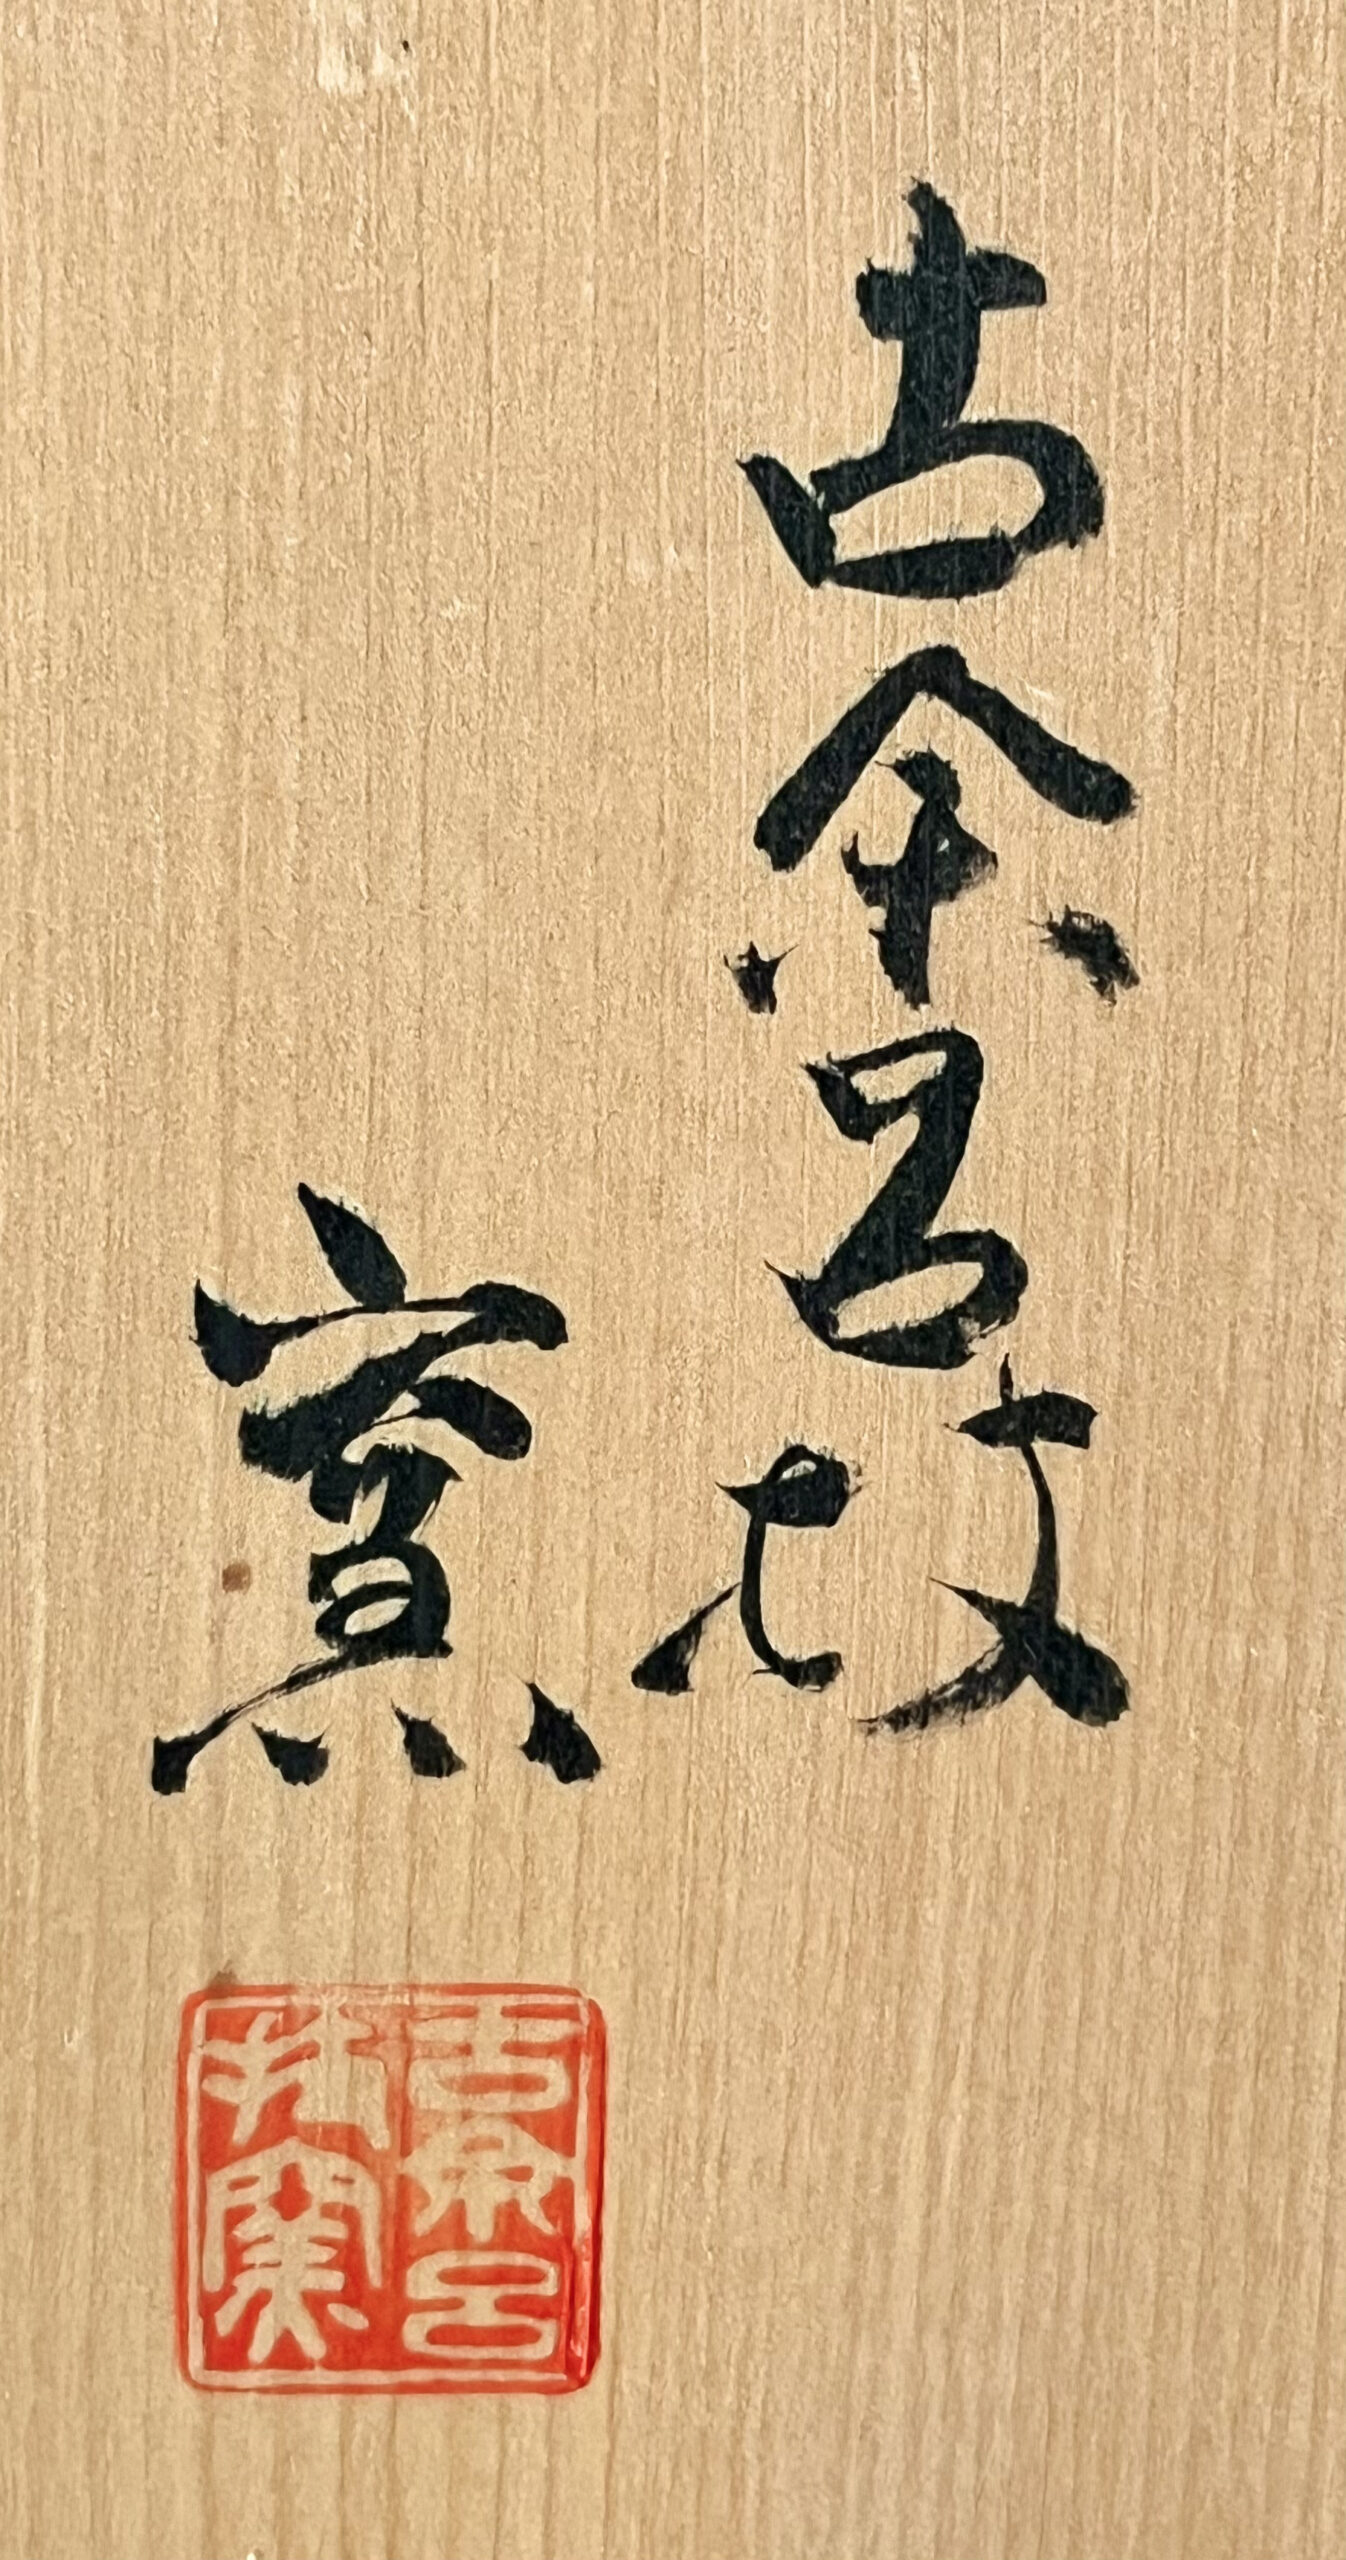 古余呂技
窯
古余呂
技窯